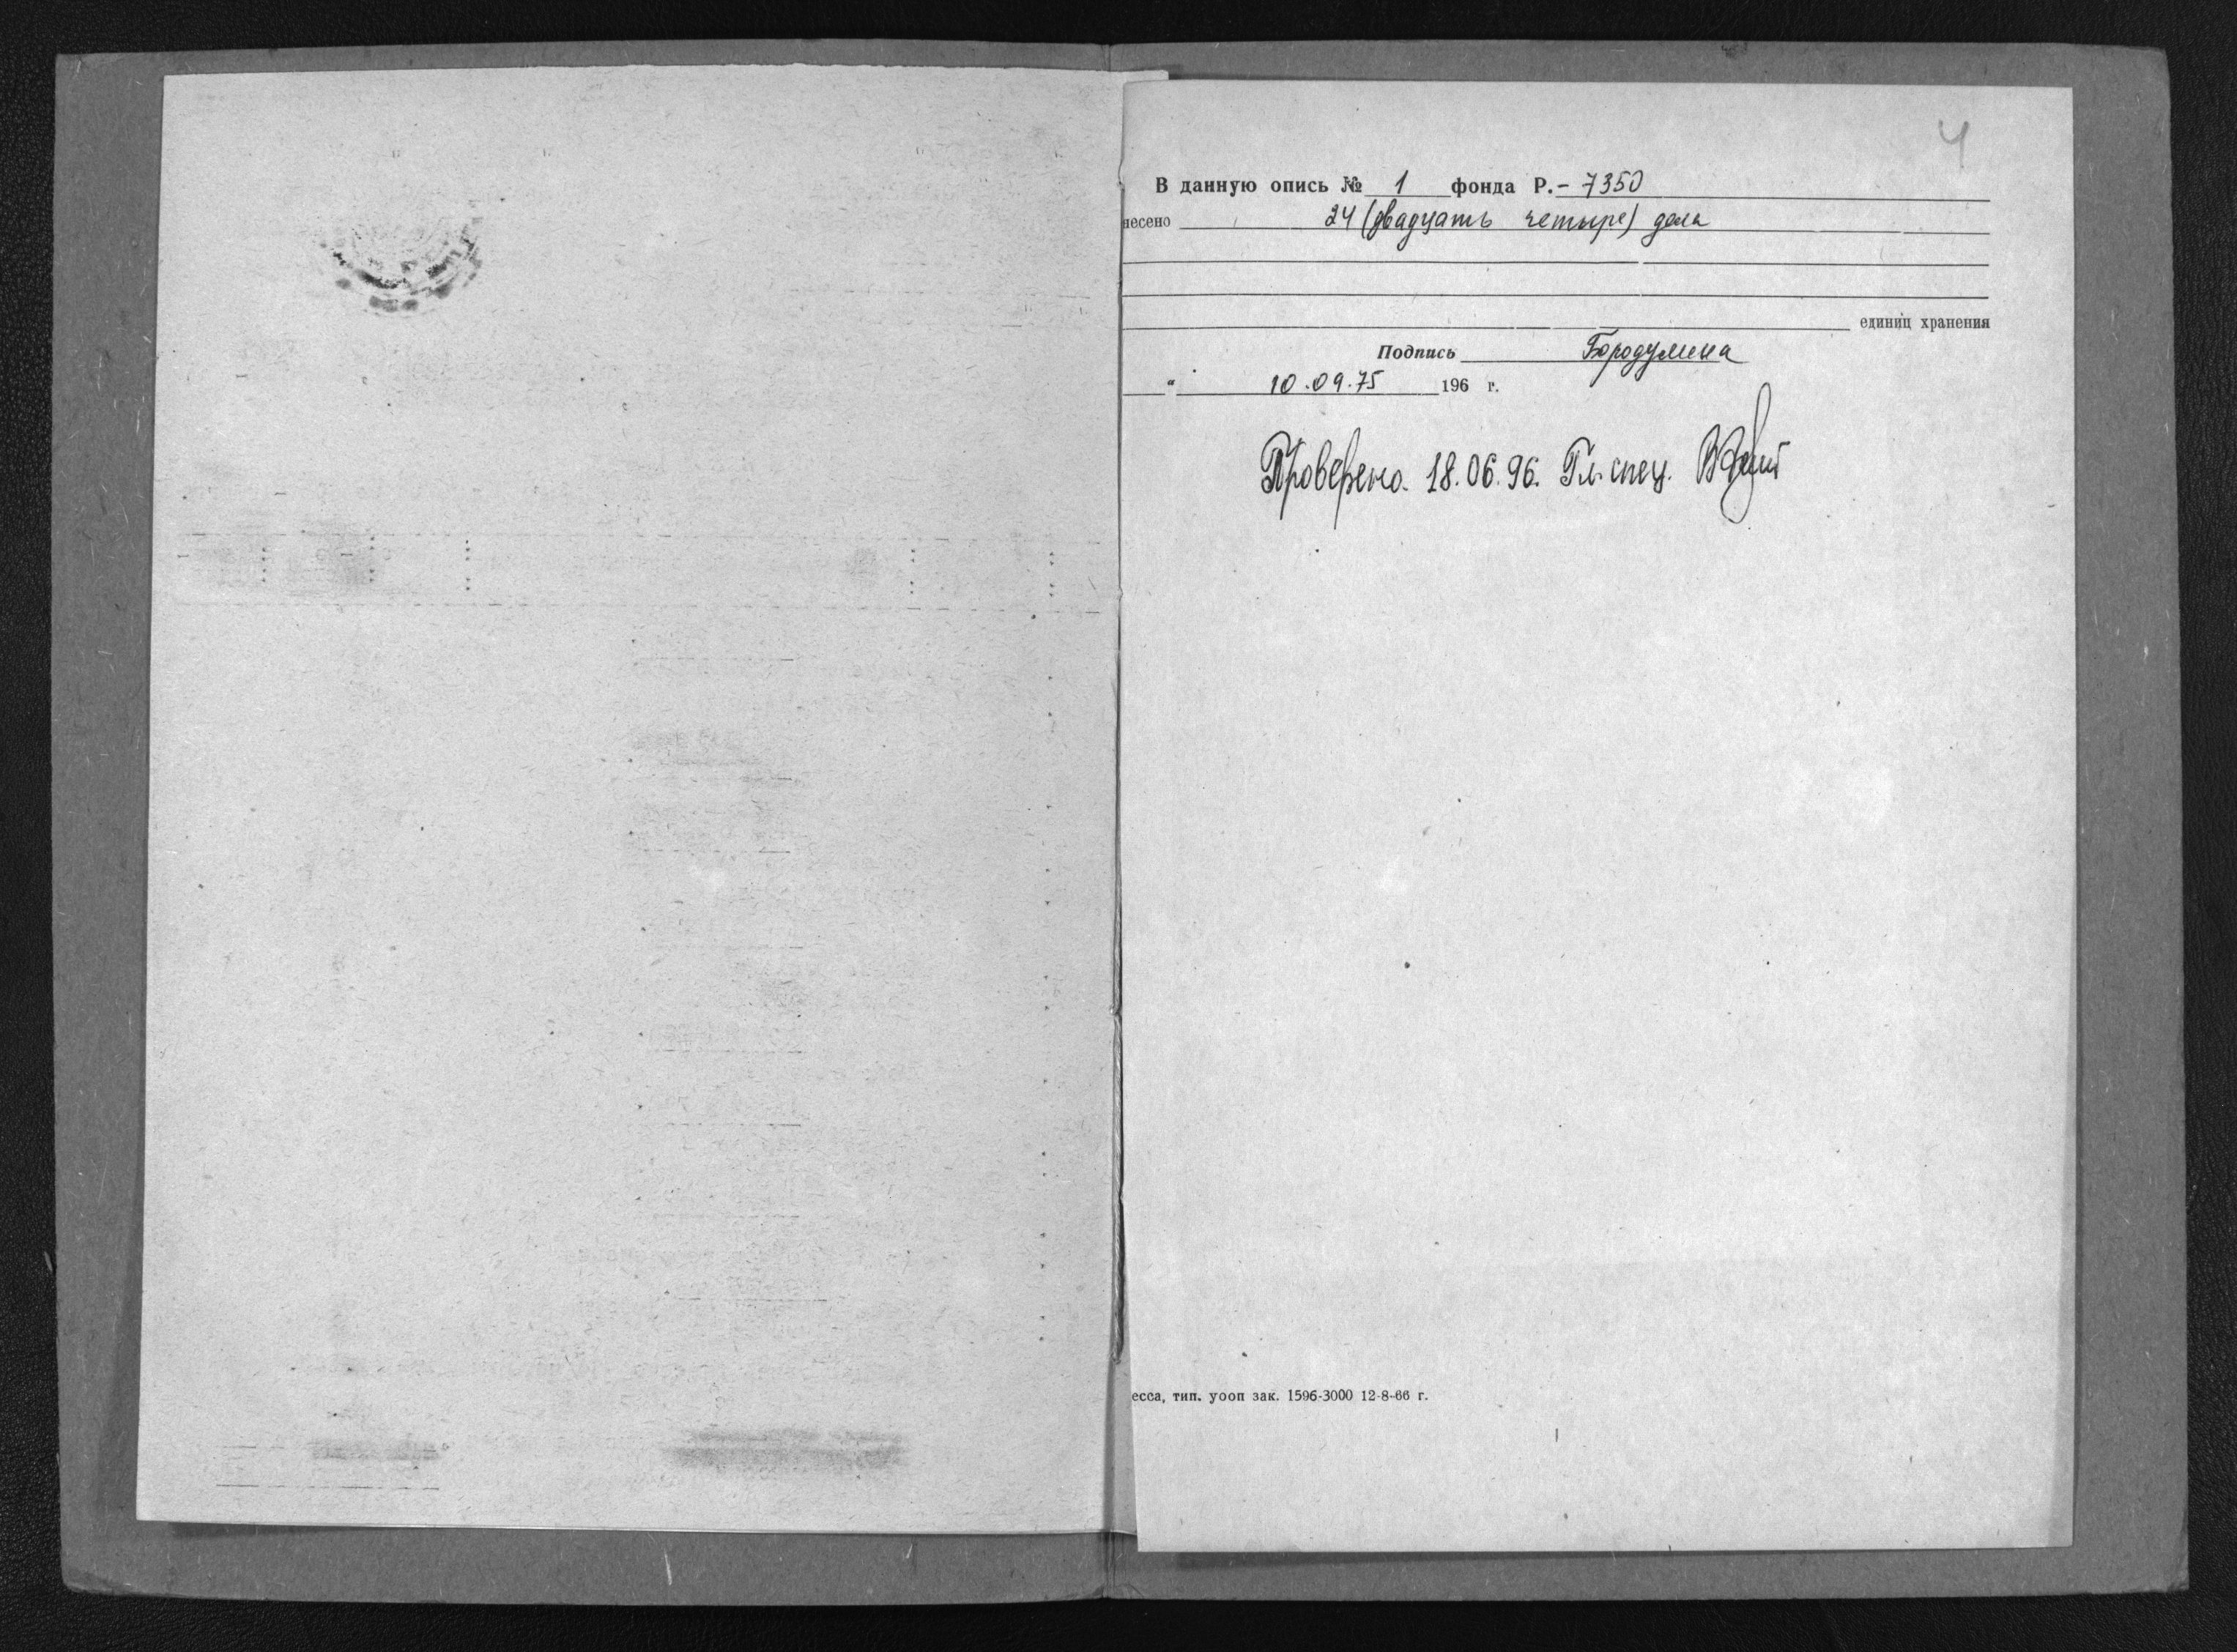 4
В данную опись № 1 фонда Р.- 7350
несено 24 (двадцать четыре) дела
единиц хранения
Подпись Бородулина
" 10.09.75 196 г.
Проверено. 18.06.96. Гл. спец.
есса, тип. уооп зак. 1596-3000 12-8-66 г.